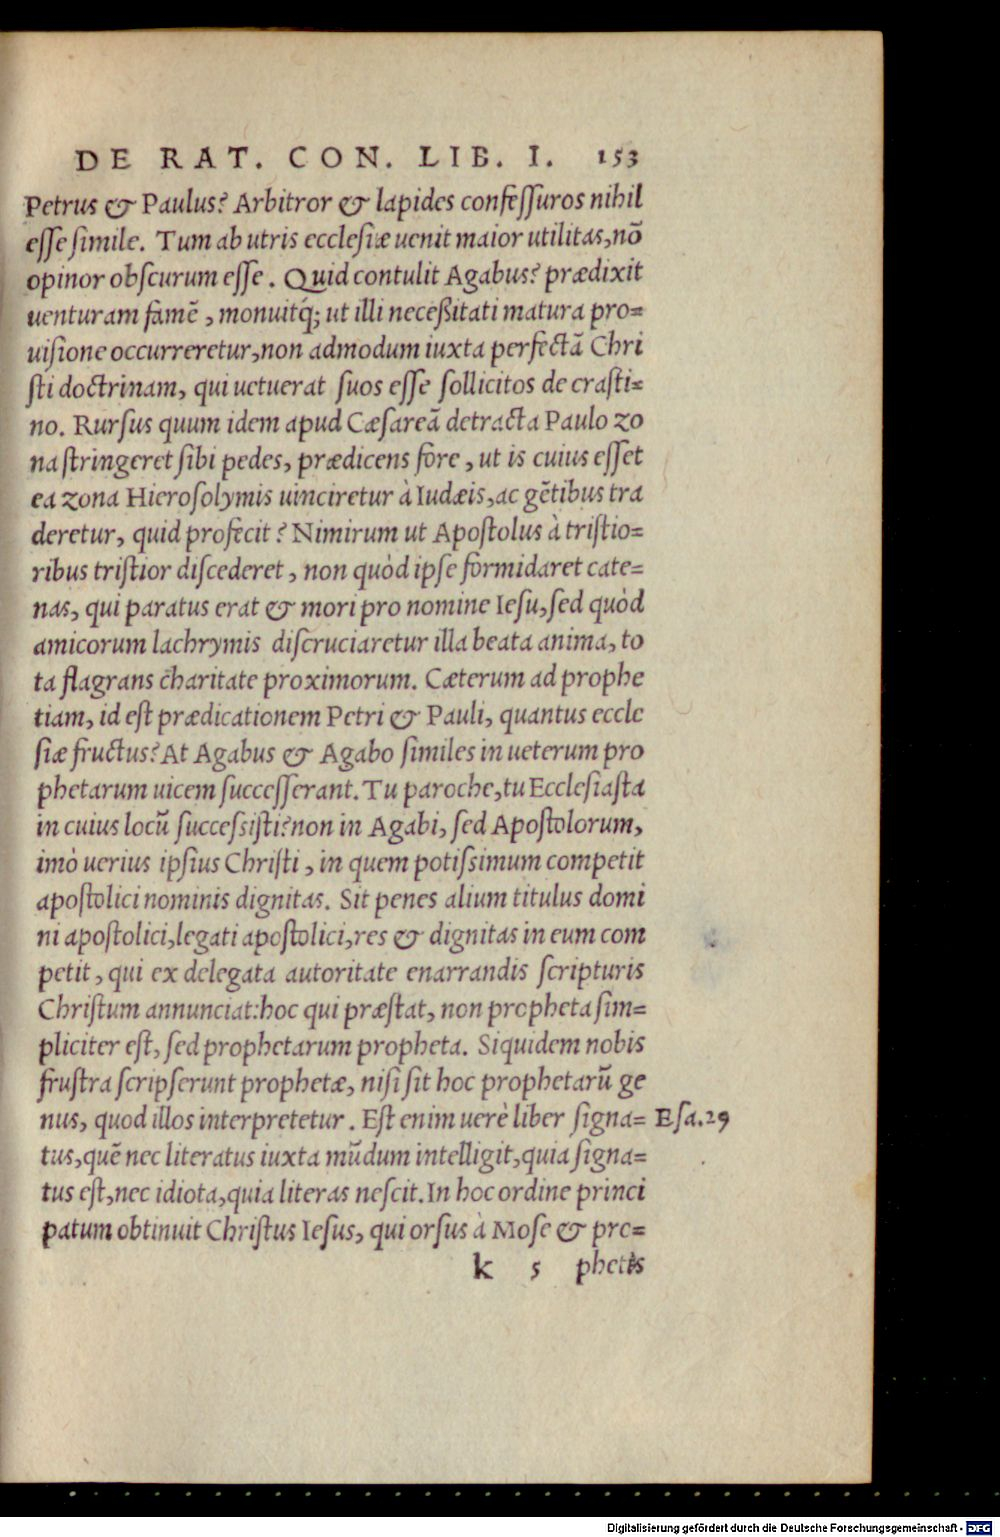 DE RAT. CON. LIB. I. 153
Petrus & Paulus? Arbitror & lapides confeſſuros nihil
eſſe ſimile. Tum ab utris eccleſiæ uenit maior utilitas,nõ
opinor obſcurum eſſe. Quid contulit Agabus? prædixit
uenturam famẽ, monuitq́; ut illi neceßitati matura pro=
uiſione occurreretur,non admodum iuxta perfectã Chri
ſti doctrinam, qui uetuerat ſuos eſſe ſollicitos de craſti=
no. Rurſus quum idem apud Cæſareã detracta Paulo zo
na ſtringeret ſibi pedes, prædicens fore, ut is cuius eſſet
ea zona Hieroſolymis uinciretur à Iudæis,ac gẽtibus tra
deretur, quid profecit? Nimirum ut Apoſtolus à triſtio=
ribus triſtior diſcederet, non quòd ipſe formidaret cate=
nas, qui paratus erat & mori pro nomine Ieſu,ſed quòd
amicorum lachrymis diſcruciaretur illa beata anima, to
ta flagrans charitate proximorum. Cæterum ad prophe
tiam, id eſt prædicationem Petri & Pauli, quantus eccle
ſiæ fructus? At Agabus & Agabo ſimiles in ueterum pro
phetarum uicem ſucceſſerant. Tu paroche,tu Eccleſiaſta
in cuius locũ ſucceſsiſti?non in Agabi, ſed Apoſtolorum,
imò uerius ipſius Chriſti, in quem potiſsimum competit
apoſtolici nominis dignitas. Sit penes alium titulus domi
ni apoſtolici,legati apoſtolici,res & dignitas in eum com
petit, qui ex delegata autoritate enarrandis ſcripturis
Chriſtum annunciat:hoc qui præſtat, non propheta ſim=
pliciter eſt, ſed prophetarum propheta. Siquidem nobis
fruſtra ſcripſerunt prophetæ, niſi ſit hoc prophetarũ ge
nus, quod illos interpretetur. Eſt enim uerè liber ſigna= Eſa.29
tus,quẽ nec literatus iuxta mũdum intelligit,quia ſigna=
tus eſt,nec idiota,quia literas neſcit. In hoc ordine princi
patum obtinuit Chriſtus Ieſus, qui orſus à Moſe & pro=
k 5 phetis
Digitalisierung gefördert durch die Deutsche Forschungsgemeinschaft - DFG